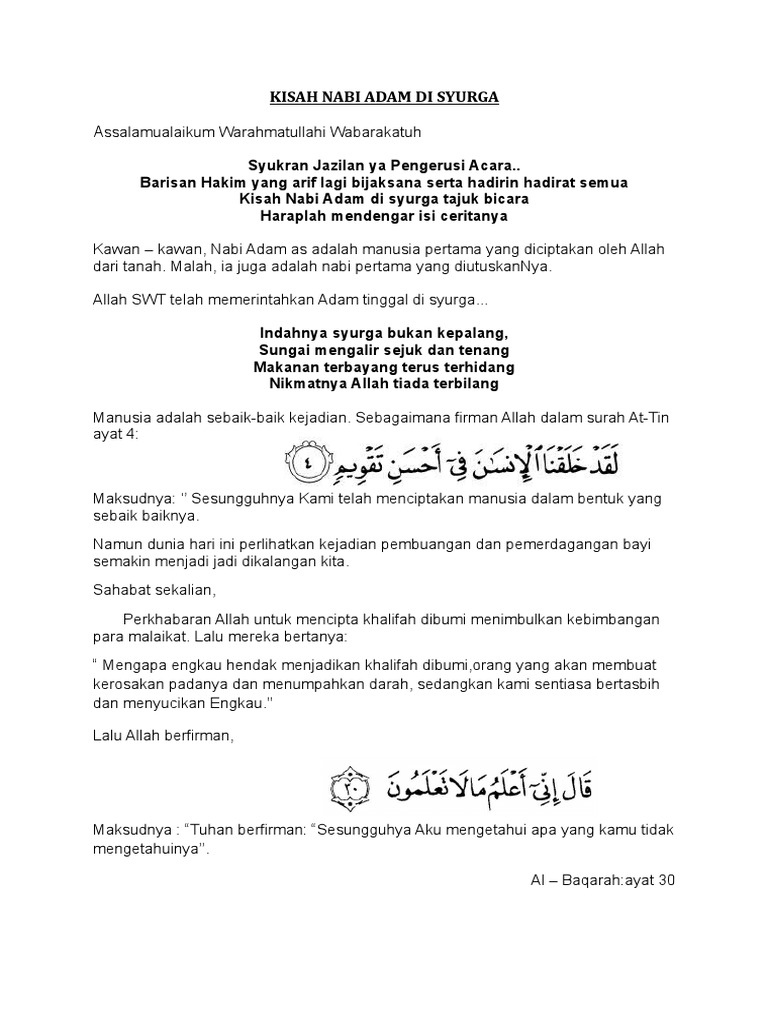 KISAH NABI ADAM DI SYURGA
Assalamualaikum Warahmatullahi Wabarakatuh
Syukran Jazilan ya Pengerusi Acara..
Barisan Hakim yang arif lagi bijaksana serta hadirin hadirat semua
Kisah Nabi Adam di syurga tajuk bicara
Haraplah mendengar isi ceritanya
Kawan – kawan, Nabi Adam as adalah manusia pertama yang diciptakan oleh Allah
dari tanah. Malah, ia juga adalah nabi pertama yang diutuskanNya.
Allah SWT telah memerintahkan Adam tinggal di syurga...
Indahnya syurga bukan kepalang,
Sungai mengalir sejuk dan tenang
Makanan terbayang terus terhidang
Nikmatnya Allah tiada terbilang
Manusia adalah sebaik-baik kejadian. Sebagaimana firman Allah dalam surah At-Tin
ayat 4:
لَقَدْ خَلَقْنَا ٱلْإِنسَـٰنَ فِىٓ أَحْسَنِ تَقْوِيمٍ ٤
Maksudnya: ‘’ Sesungguhnya Kami telah menciptakan manusia dalam bentuk yang
sebaik baiknya.
Namun dunia hari ini perlihatkan kejadian pembuangan dan pemerdagangan bayi
semakin menjadi jadi dikalangan kita.
Sahabat sekalian,
Perkhabaran Allah untuk mencipta khalifah dibumi menimbulkan kebimbangan
para malaikat. Lalu mereka bertanya:
“ Mengapa engkau hendak menjadikan khalifah dibumi,orang yang akan membuat
kerosakan padanya dan menumpahkan darah, sedangkan kami sentiasa bertasbih
dan menyucikan Engkau.’’
Lalu Allah berfirman,
قَالَ إِنِّىٓ أَعْلَمُ مَا لَا تَعْلَمُونَ ٣٠
Maksudnya : “Tuhan berfirman: “Sesungguhya Aku mengetahui apa yang kamu tidak
mengetahuinya’’.
Al – Baqarah:ayat 30